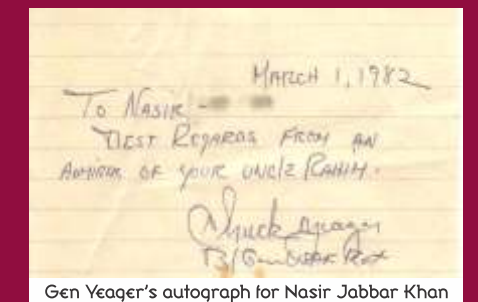 MARCH 1, 1982
TO NASIR -
BEST REGARDS FROM AN
ADMIRER OF YOUR UNCLE RAHIM.
Chuck Yeager
B/Gen USAF Ret
Gen Yeager's autograph for Nasir Jabbar Khan